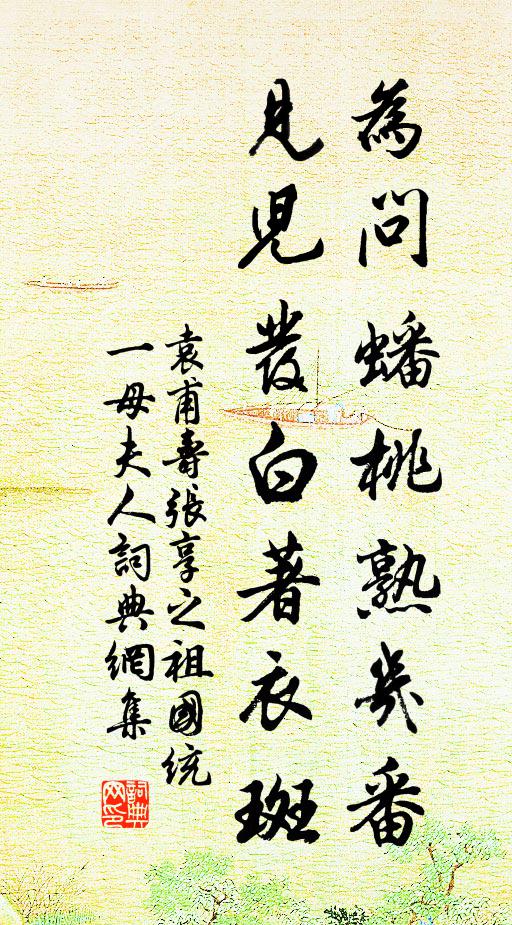 為問蟠桃熟幾番
見兒發白著衣斑
袁甫壽張享之祖國統
一母夫人詞典網集
詞典網印